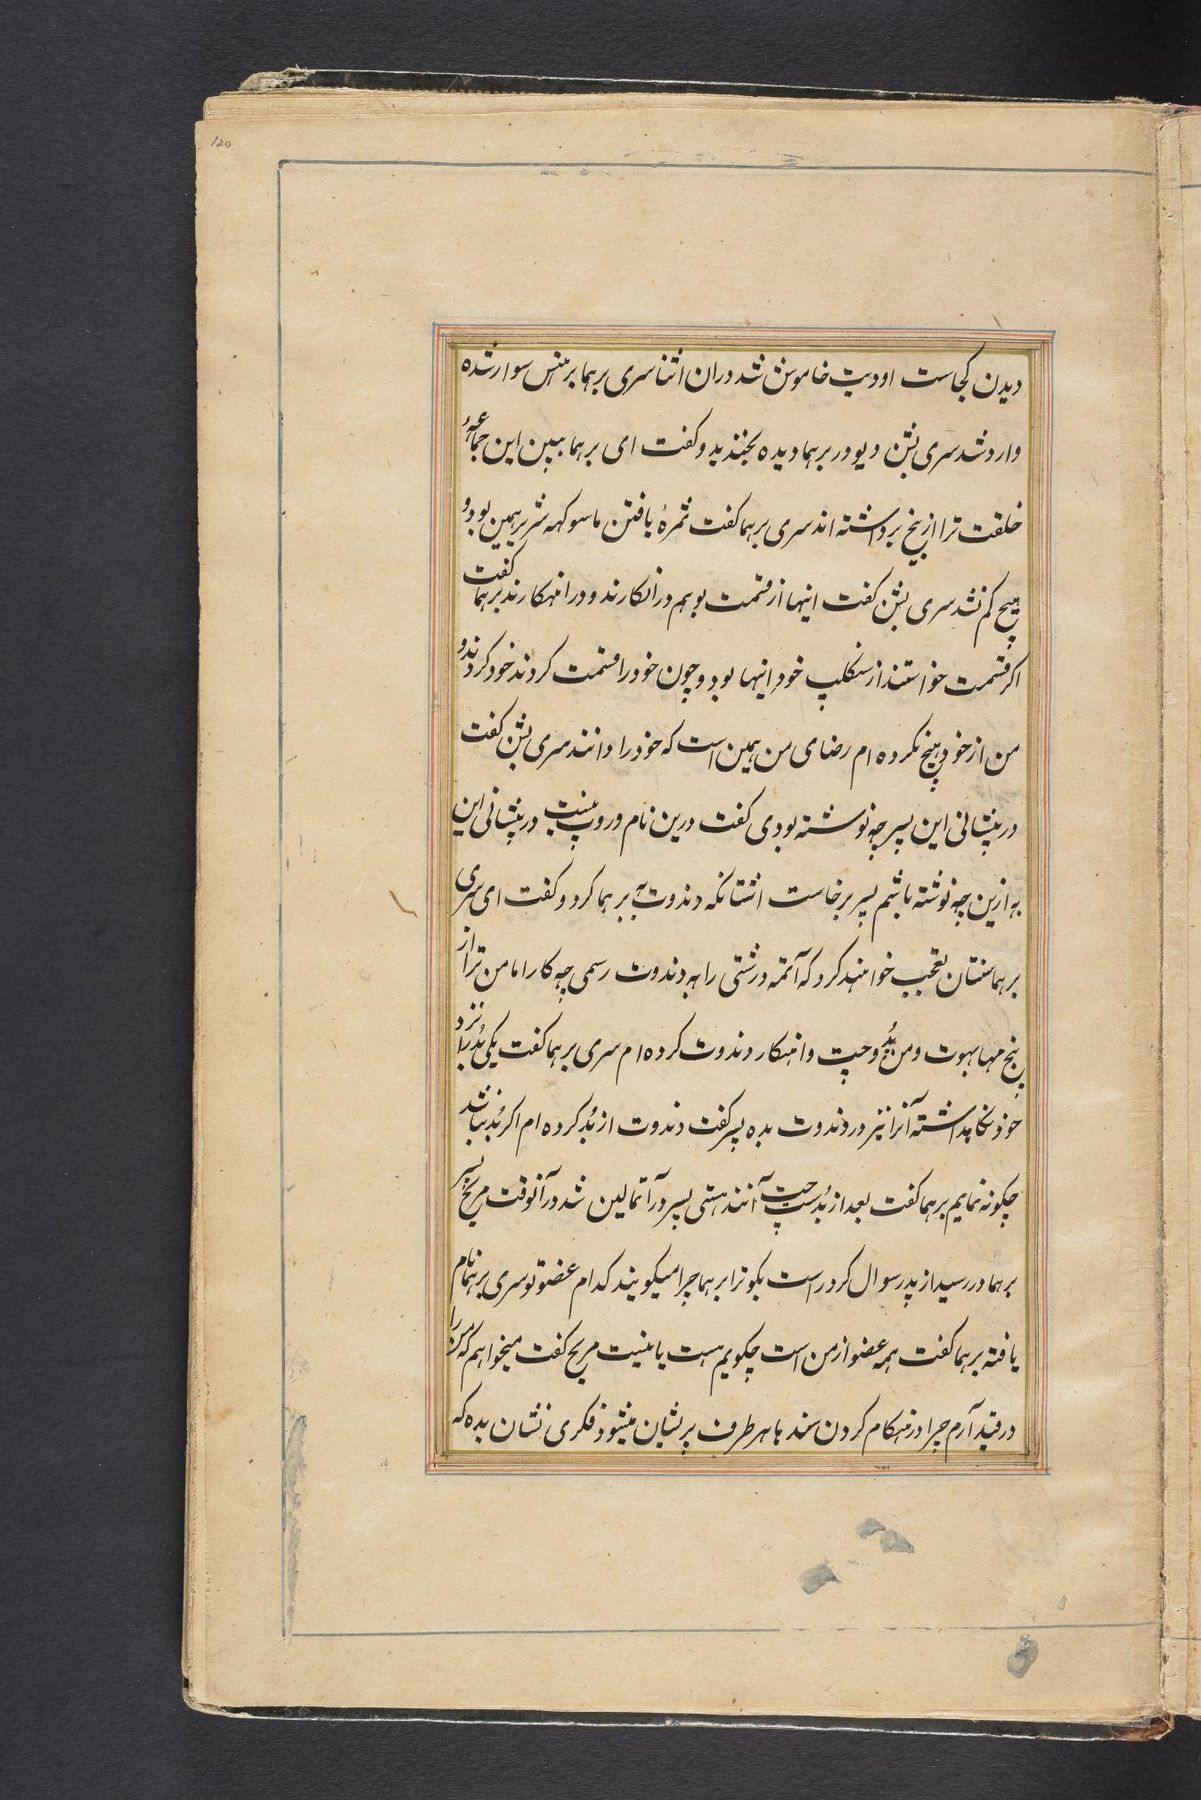 120
دیدن کجاست اودیت خاموش شد دران اثنا سری برهما بر هنس سوار شده
وارد شد سری بشن دیو در برهما دیده بخندید و گفت ای برهما ببین این جماعهٔ
خلقت ترا از بیخ برداشته اند سری برهما گفت ثمرهٔ یافتن ماسوکهه شریر همین بود و
هیچ کم نشد سری بشن گفت اینها از قسمت بوهم درانکارند و در انهکارند برهما گفت
اکر قسمت خواستند از سنکلپ خود اینها بود و چون خود را قسمت کردند خود کردند و
من از خود هیچ نکرده ام رضای من همین است که خود را دانند سری بشن کفت
در پیشانی این پسر چه نوشته بودی کفت درین نام و روپ نیست در پیشانی این
به ازین چه نوشته باشم پسر برخاست اشتانکه دندوت به برهما کرد و کفت ای سری
برهما سنتان تعجب خواهند کرد که آتمه درشتی را به دندوت رسمی چه کار اما من ترا از
پنج مهابهوت و من و بُدّه و چیت و انهکار دندوت کرده ام سری برهما کفت یکی بُد را نزد
خود نکاهداشته آنرا نیز در دندوت بده پسر کفت دندوت از بُد کرده ام اکر بُد نباشد
چکونه نمایم برهما کفت بعد از بُد ست چیت آنند هستی پسر در آتما لین شد در آنوقت مریخ پسر
برهما در رسید از پدر سوال کرد راست بکو ترا برهما چرا میکویند کدام عضو تو سری برهما نام
یافته برهما کفت همه عضو از من است چکویم هست یا نیست مریخ کفت میخواهم که من را
در قید آرم چرا در هنکام کردن سندها هر طرف پریشان میشود فکری نشان بده که